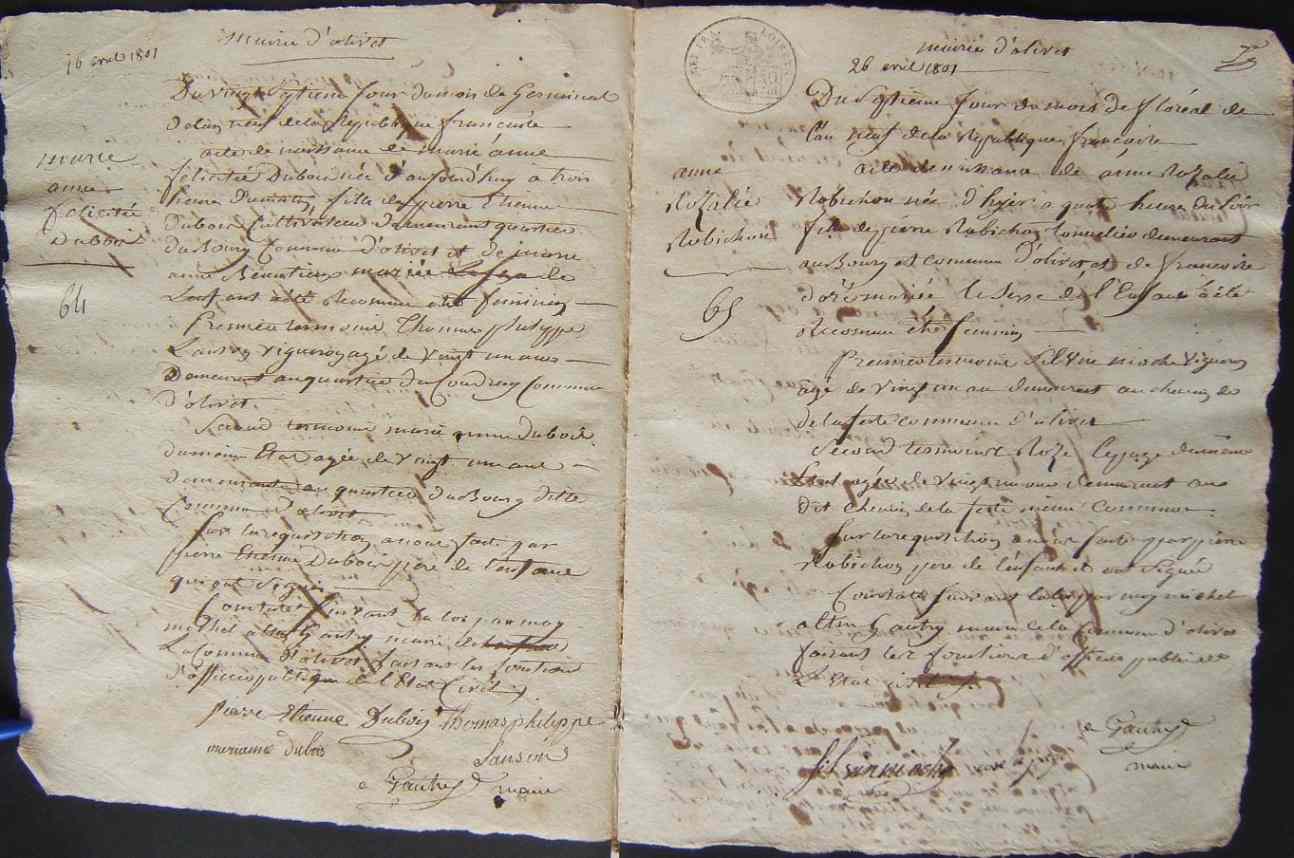 mairie d'olivet
16 avril 1801
Du vingt septieme jour du mois de Germinal
de l'an neuf de la Republique francaise
acte de naissance de marie anne
felicitée Dubois née d'aujourdhuy a trois
heure Du matin, fille de pierre Etienne
dubois Cultivateur demeurant quartier
du Bourg Commune d'olivet et de marie
anne mariée le sexe de
L'enfant a été Reconnu etre feminin
marie
anne
felicité
Dubois
64
Premier temoin Thomas philippe
Sanson vigneron agé de vingt un ans
Demeurant au quartier du Coudray Commune
d'olivet.
Second temoin marie anne dubois
du même Etat agée de vingt un ans
demeurante au quartier du Bourg ditte
Commune d'olivet
Sur la requisition a nous faite par
pierre Etienne Dubois pere de l'enfant
qui ont signé
Constaté suivant la loi par moy
michel Gautry maire de
La Commune d'olivet faisant les fonctions
d'officier publique de l'Etat Civil
pierre Etienne Dubois Thomas philippe
marianne dubois Sanson
Gautry maire
mairie d'olivet
26 avril 1801
Du septieme jour du mois de floréal de
l'an neuf de la Republique françoise
acte de naissance de anne Rozalie
Robichon née d'hyer a quatre heure du soir
fille de pierre Robichon tonnelier demeurant
au Bourg et commune D'olivet, et de francoise
doré mariée le sexe de l'Enfant a été
Reconnu être feminin
anne
Rozalie
Robichon
65
Premier temoin Silvin vigneron
agé de vingt un an demeurant au chemin de
de la ferté commune d'olivet
Second temoin Roze lepage du même
Etat agée de vingt un ans demeurant au
dit chemin de la ferté meme Commune.
Sur la requisition a nous faite par pierre
Robichon pere de l'enfant et ont Signé
Constaté suivant la loi par moy michel
Gautry maire de la Commune d'olivet
faisant les fonctions d'officier public de
L'Etat civil
Gautry
maire